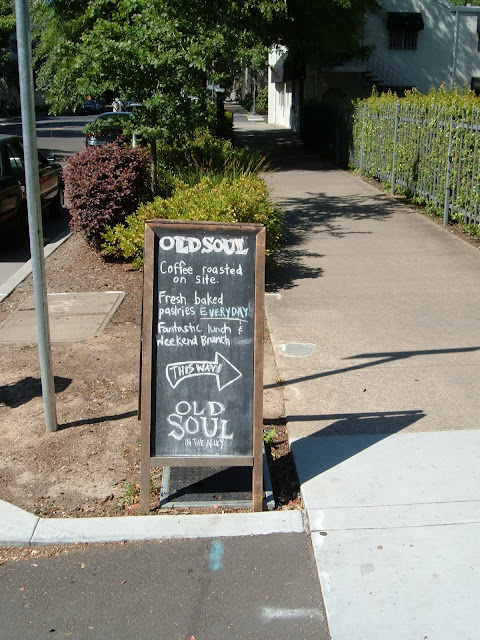 OLD SOUL
Coffee roasted
on site.
Fresh baked
pastries EVERYDAY!
Fantastic lunch &
Weekend Brunch
THIS WAY!
OLD
SOUL
IN THE ALLEY